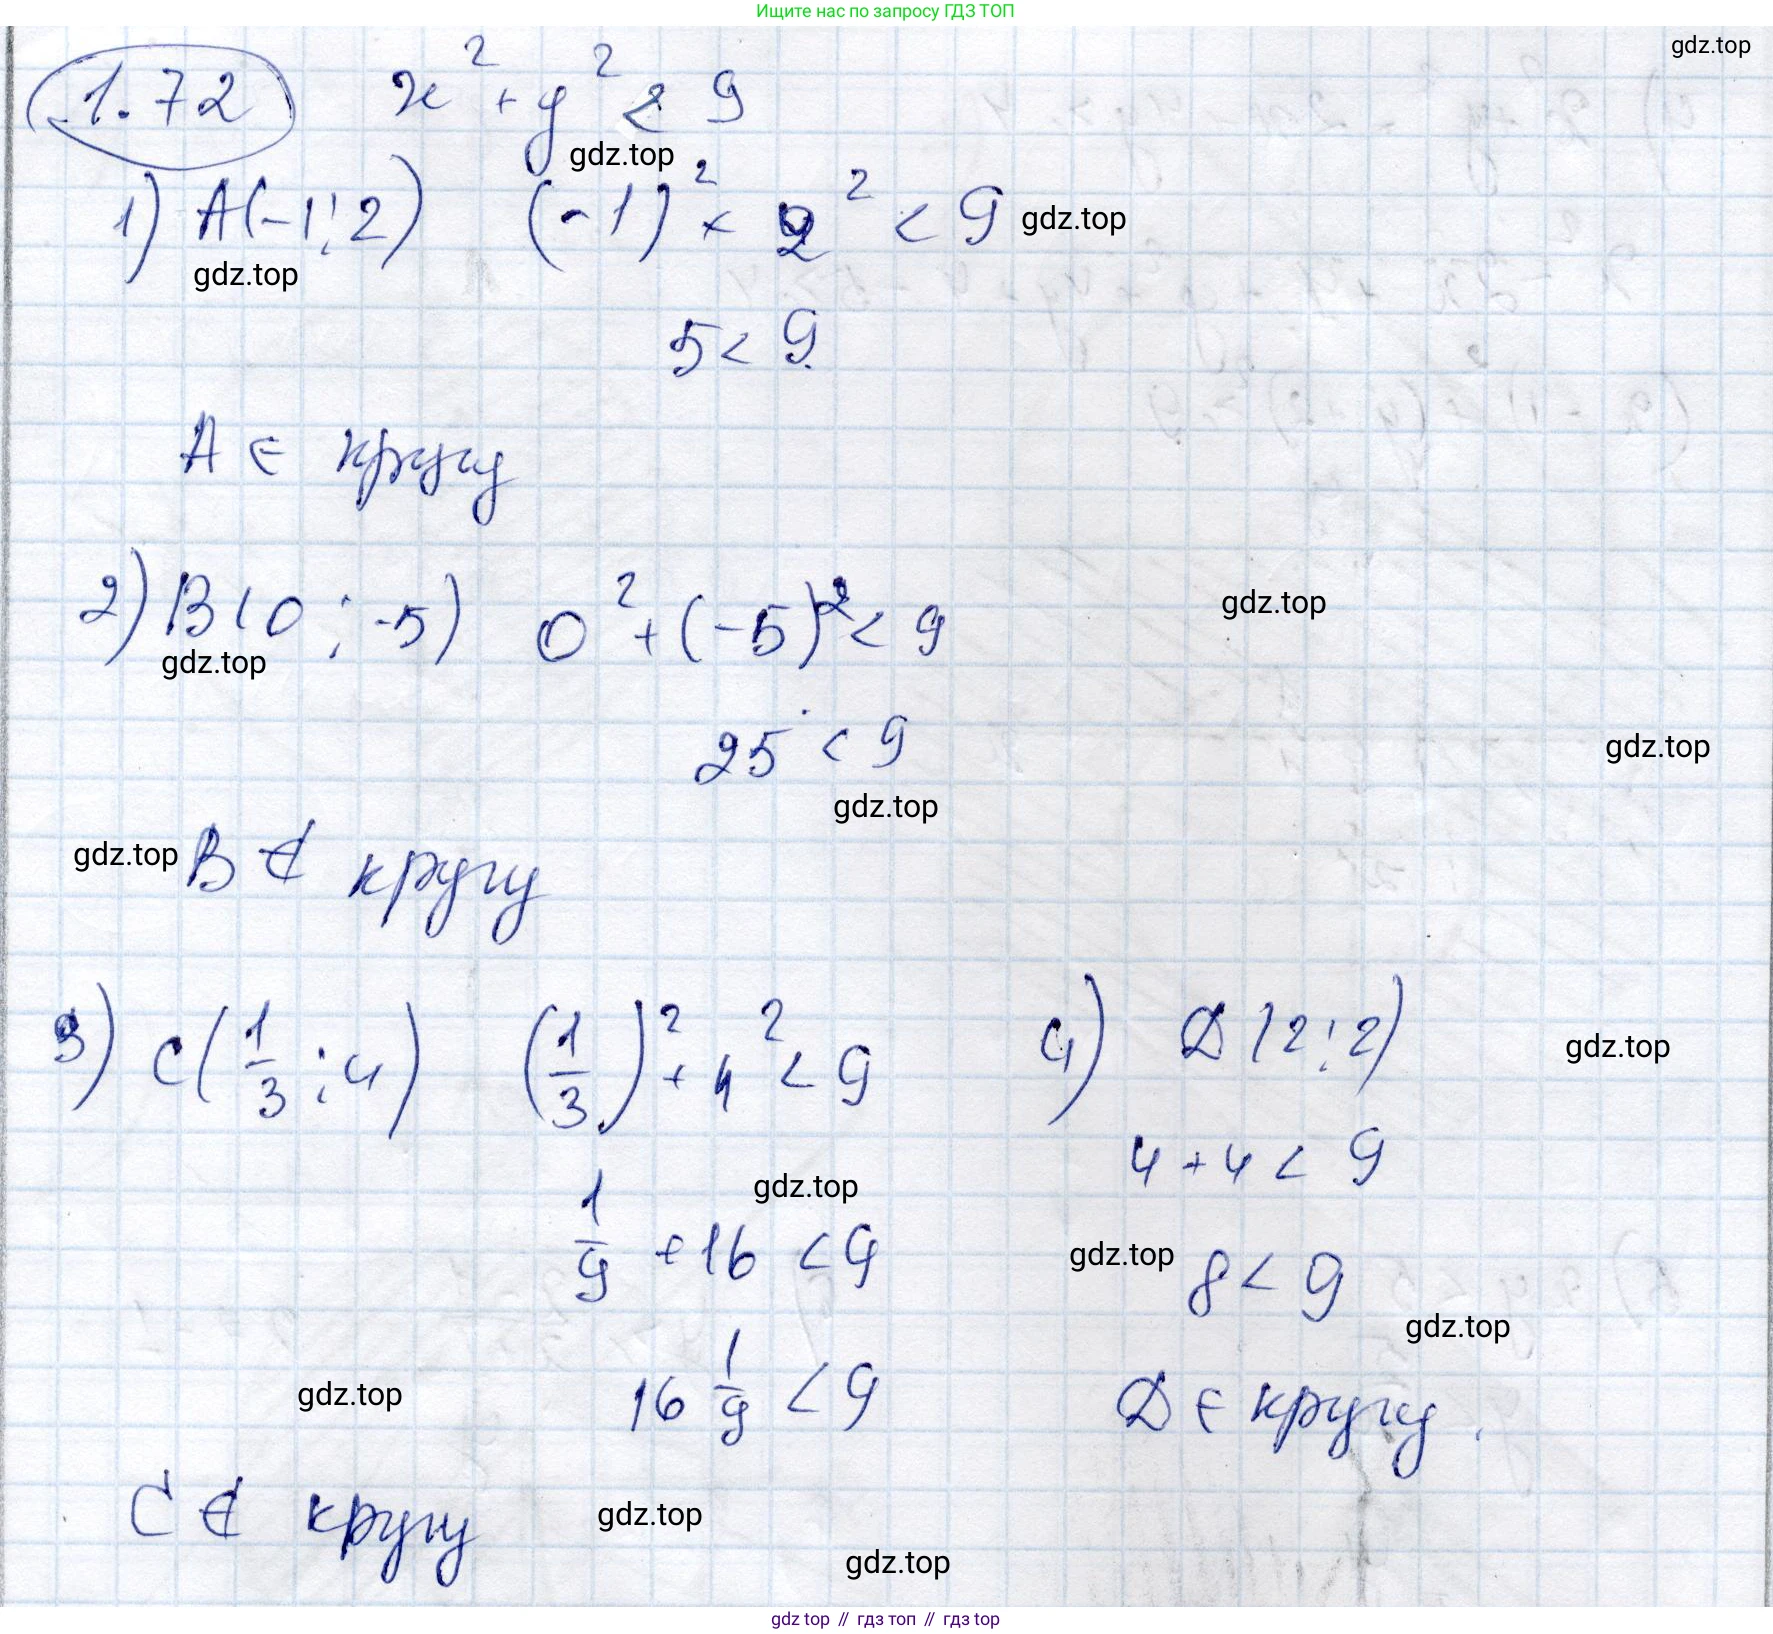 Ищите нас по запросу ГДЗ ТОП
gdz.top
1.72 x² + y² < 9
gdz.top
1) A(-1; 2) (-1)² + 2² < 9 gdz.top
gdz.top
5 < 9
A ∈ кругу
2) B(0; -5) 0² + (-5)² < 9 gdz.top
gdz.top
25 < 9 gdz.top
gdz.top
gdz.top B ∉ кругу
3) C(1/3; 4) (1/3)² + 4² < 9
gdz.top
1/9 + 16 < 9
16 1/9 < 9
gdz.top
C ∉ кругу gdz.top
gdz.top
4) D(2; 2) gdz.top
4 + 4 < 9
gdz.top 8 < 9
gdz.top
D ∈ кругу.
gdz top // гдз топ // гдз top